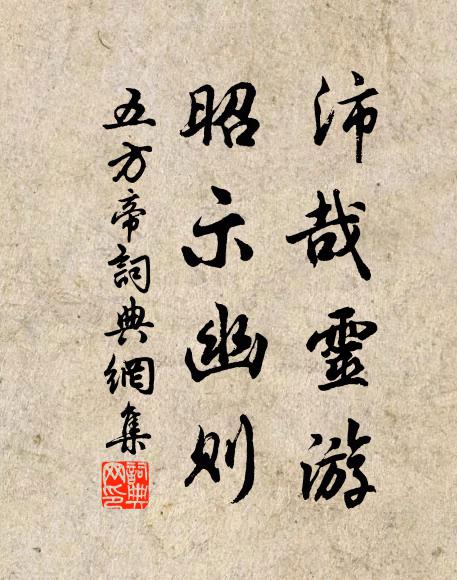 沛哉靈游
昭示幽则
五方帝詞典網集
詞典网印